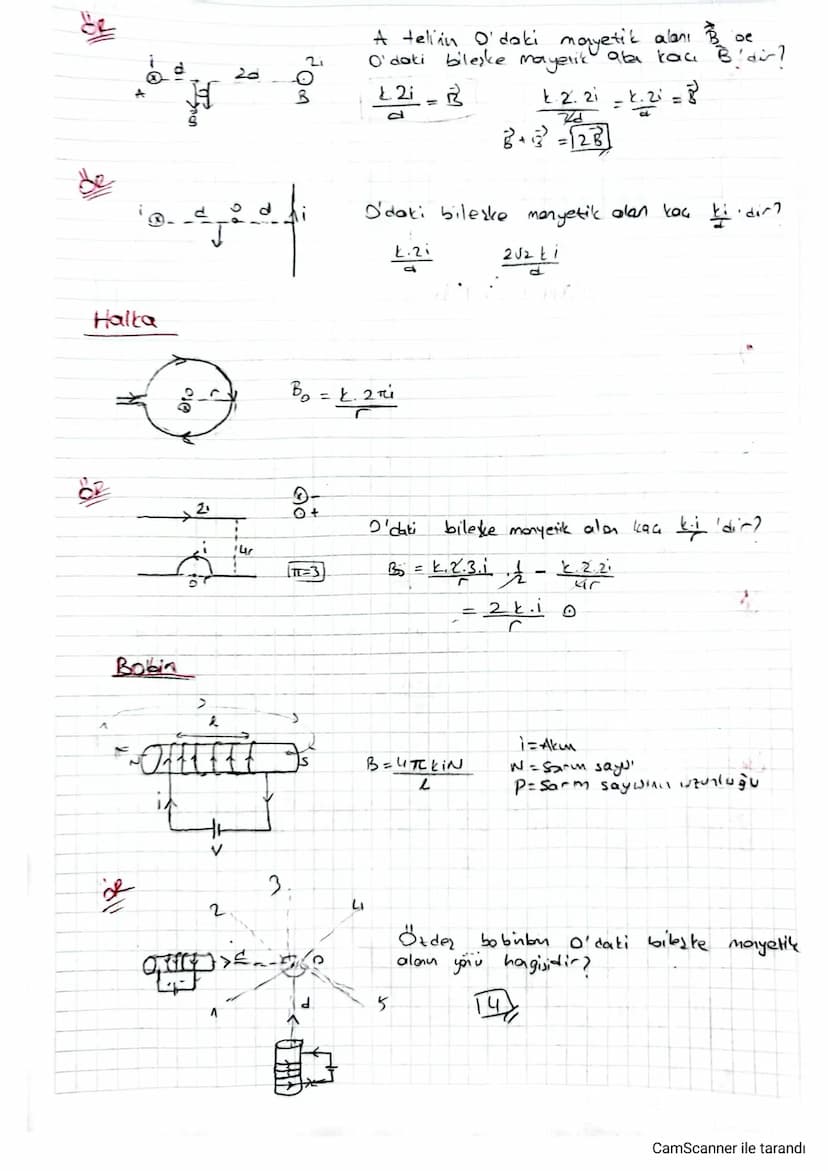 ÖR
A telinin O'daki manyetik alanı B ise
O'daki bileşke manyetik alan kaç B'dir?
i d 2d 2i
A B
B
k.2i/d = B
k.2.2i/2d = k.2i/d = B
B + B = 2B
ÖR
i d O d i
O'daki bileşke manyetik alan kaç ki/d 'dir?
k.2i/d
2√2 ki/d
Halka
O r
B₀ = k.2πi/r
ÖR
2i
i
4r
O
⊗ -
⊙ +
π=3
O'daki bileşke manyetik alan kaç k.i/r 'dir?
B₀ = k.2.3.i/r . 1/2 - k.2.2i/4r
= 2k.i/r ⊙
Bobin
l
N S
i
V
B = 4πkiN/l
i = Akım
N = Sarım sayısı
P = Sarım sayısının uzunluğu
ÖR
1 2 3 4 5
d O
d
Özdeş bobinlerin O'daki bileşke manyetik
alanın yönü hangisidir?
4
CamScanner ile tarandı